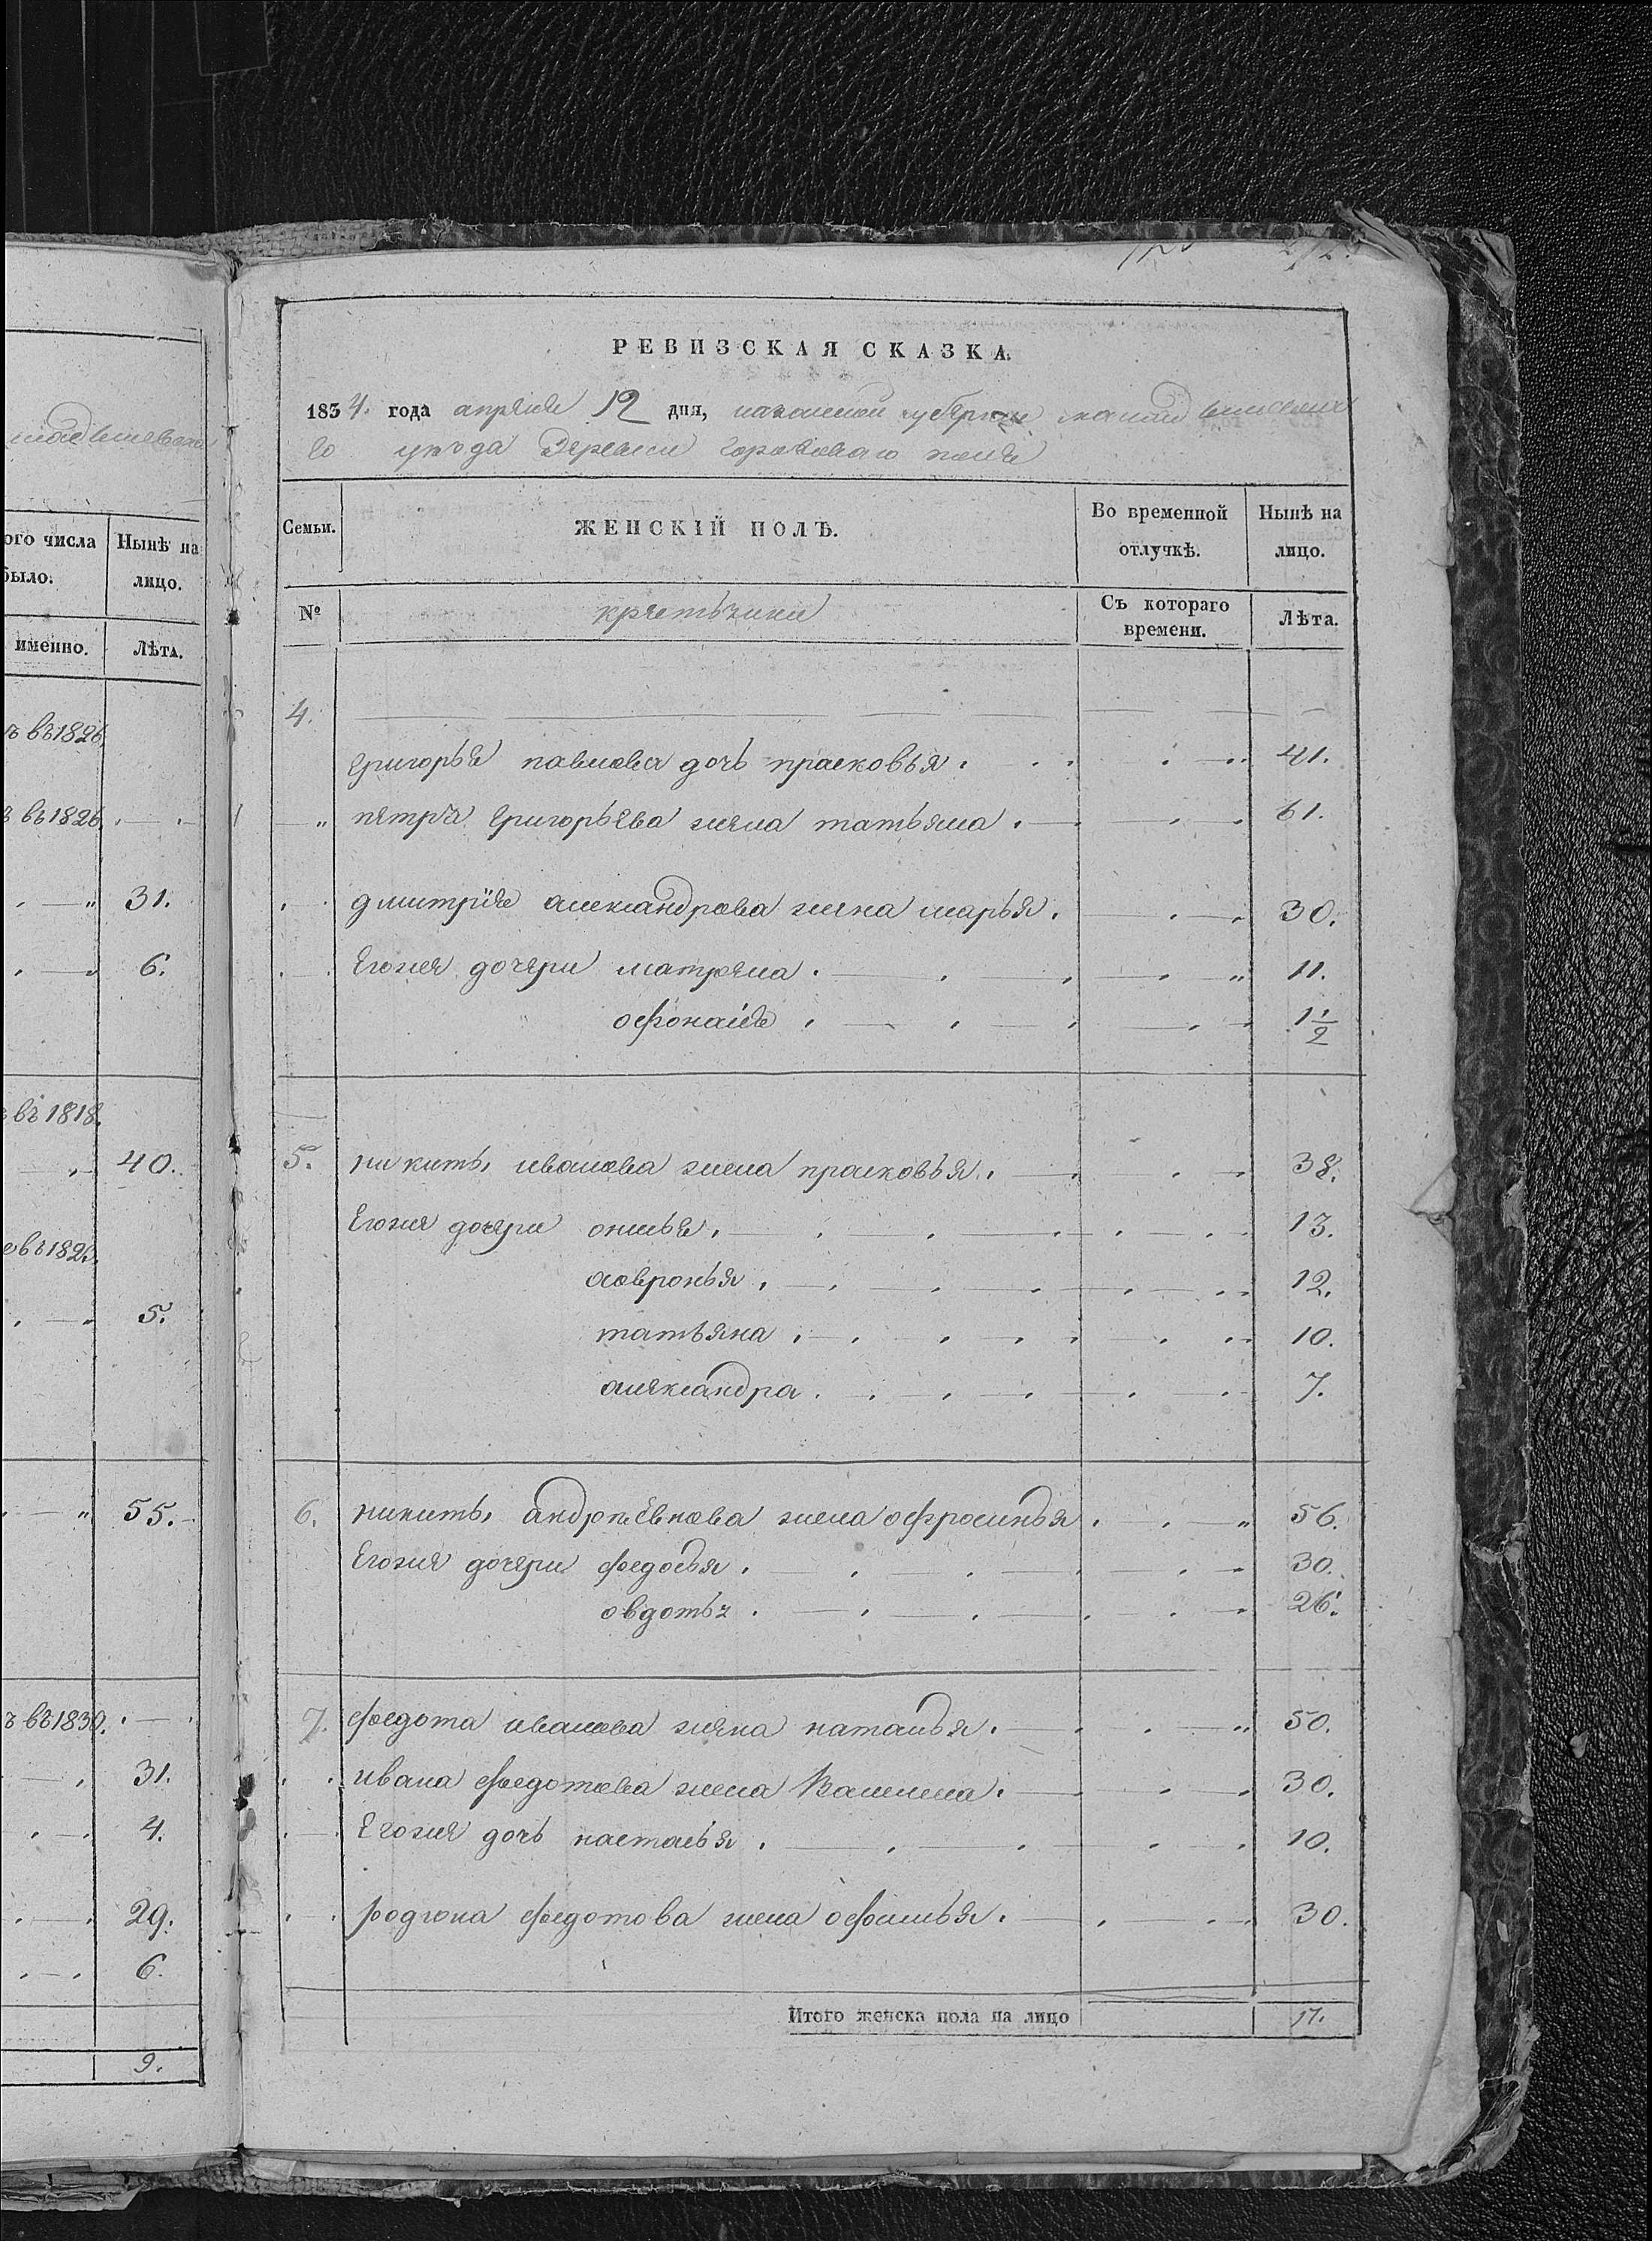 надышевска
ого числа Нынѣ на
было. лицо.
именно. Лѣта.
въ 1826.
въ 1826.
31.
6.
въ 1818.
40.
5.
55.
въ 1830.
31.
4.
29.
6.
9.
РЕВИЗСКАЯ СКАЗКА.
1834. года апреля 12 дня, казанской губернии
го уезда деревни гороховаго поля
Семьи. ЖЕНСКІЙ ПОЛЪ. Во временной отлучкѣ. Нынѣ на лицо.
№ Съ котораго времени. Лѣта.
4.
григорья павлова дочь прасковья. 41.
петра григорьева жена татьяна. 61.
дмитрия александрова жена марья. 30.
Егоже дочери матрена. 11.
офонасія 1 1/2
5. никиты иванова жена прасковья. 38.
Егоже дочери 13.
12.
татьяна 10.
александра. 7.
6. никиты жена офросинья. 56.
Егоже дочери федосья. 30.
овдотья. 26.
7. федота иванова жена наталья. 50.
ивана федотова жена 30.
Егоже дочь настасья. 10.
родиона федотова жена офимья. 30.
Итого женска пола на лицо 17.